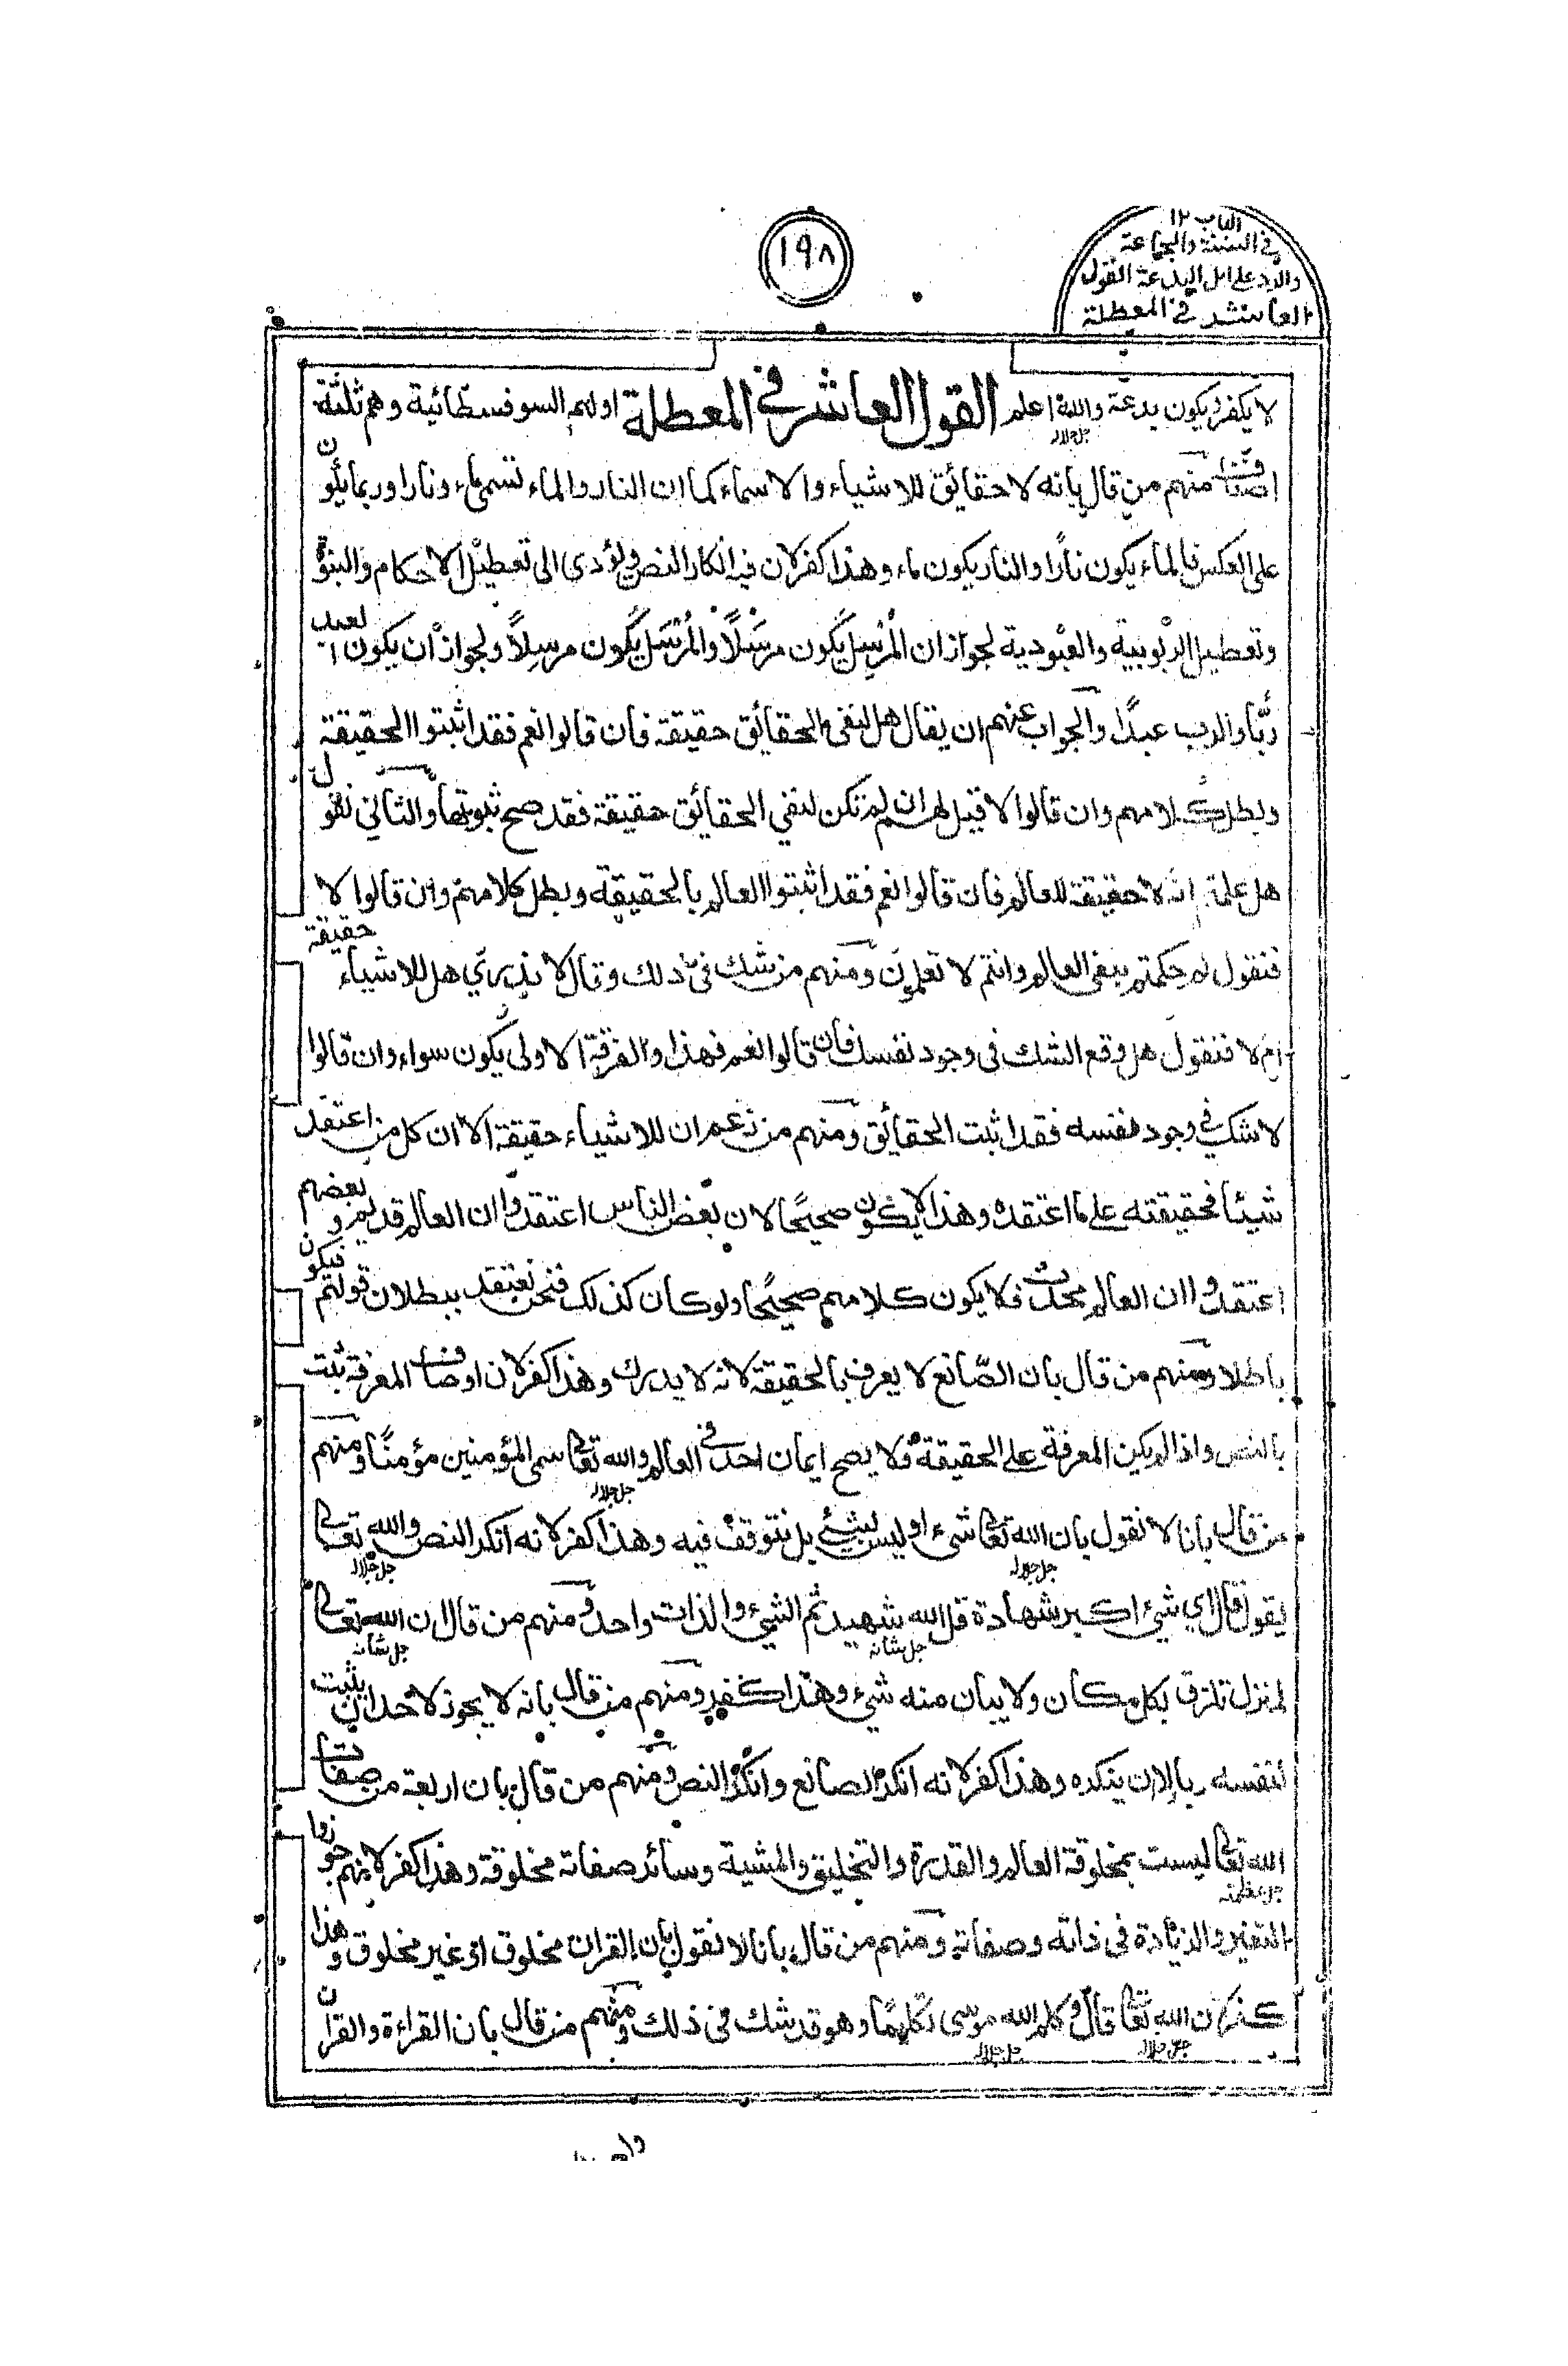 ١٩٨
الباب ١٢
في السنة والجماعة
والرد على اهل البدعة القول
العاشر في المعطلة
لا يكفر ويكون بدعة والله اعلم القول العاشر في المعطلة اولهم السوفسطائية وهم ثلثة
جل جلاله
اصناف منهم من قال بانه لا حقائق للاشياء والاسماء كما ان النار والماء تسمى ماء ونارا وربما يكون
على العكس فالماء يكون نارًا والنار يكون ماء وهذا كفر لان فيه انكار النص ويؤدي الى تعطيل الاحكام والنبوة
وتعطيل الربوبية والعبودية لجواز ان المُرسِل يكون مرسَلًا والمُرسَل يكون مرسِلاً ولجواز ان يكون العبد
ربًّا والرب عبدًا والجواب عنهم ان يقال هل لنفي الحقائق حقيقة فان قالوا نعم فقد اثبتوا الحقيقة
وبطل كلامهم وان قالوا لا قيل لهم ان لم تكن لنفي الحقائق حقيقة فقد صح ثبوتها والثاني نقول
هل علمتم انه لا حقيقة للعالم فان قالوا نعم فقد اثبتوا العالم بالحقيقة وبطل كلامهم وان قالوا لا
فنقول لم حكمتم بنفي العالم وانتم لا تعلمون ومنهم من شك في ذلك وقال لا ندري هل للاشياء حقيقة
ام لا فنقول هل وقع الشك في وجود نفسك فان قالوا نعم فهذا والفرقة الاولى يكون سواء وان قالوا
لا شك في وجود نفسه فقد اثبت الحقائق ومنهم من زعم ان للاشياء حقيقة الا ان كل من اعتقد
شيئا فحقيقته على ما اعتقده وهذا لا يكون صحيحًا لان بعض الناس اعتقدوا ان العالم قديم وبعضهم
اعتقدوا ان العالم محدث فلا يكون كلامهم صحيحًا ولو كان كذلك فنحن نعتقد ببطلان قولهم فيكون
باطلا ومنهم من قال بان الصّانع لا يعرف بالحقيقة لانه لا يدرك وهذا كفر لان اوصاف المعرفة ثبت
بالنص واذا لم يكن المعرفة على الحقيقة فلا يصح ايمان احد في العالم والله تعالى سمى المؤمنين مؤمنًا ومنهم
جل جلاله
من قال بانا لا نقول بان الله تعالى شيء او ليس بشيء بل نتوقف فيه وهذا كفر لانه انكر النص والله تعالى
جل جلاله جل جلاله
يقول قل اي شيء اكبر شهادة قل الله شهيد ثم الشيء والذات واحد ومنهم من قال ان الله تعالى
جل شانه جل شانه
لم نزل تلزق بكل مكان ولا يبان منه شيء وهذا كفر ومنهم من قال بانه لا يجوز لاحد ان يثبت
لنفسه ربا لان ينكره وهذا كفر لانه انكر الصانع وانكر النص ومنهم من قال بان اربعة من صفات
الله تعالى ليست بمخلوقة العالم والقدرة والتخليق والمشية وسائر صفاته مخلوقة وهذا كفر لانهم جوزوا
جل عظمته
التغير والزيادة في ذاته وصفاته ومنهم من قال بانا لا نقول بان القران مخلوق او غير مخلوق وهذا
كفر لان الله تعالى قال وكلم الله موسى تكليمًا وهو قد شك في ذلك ومنهم من قال بان القراءة والقران
جل جلاله جل جلاله